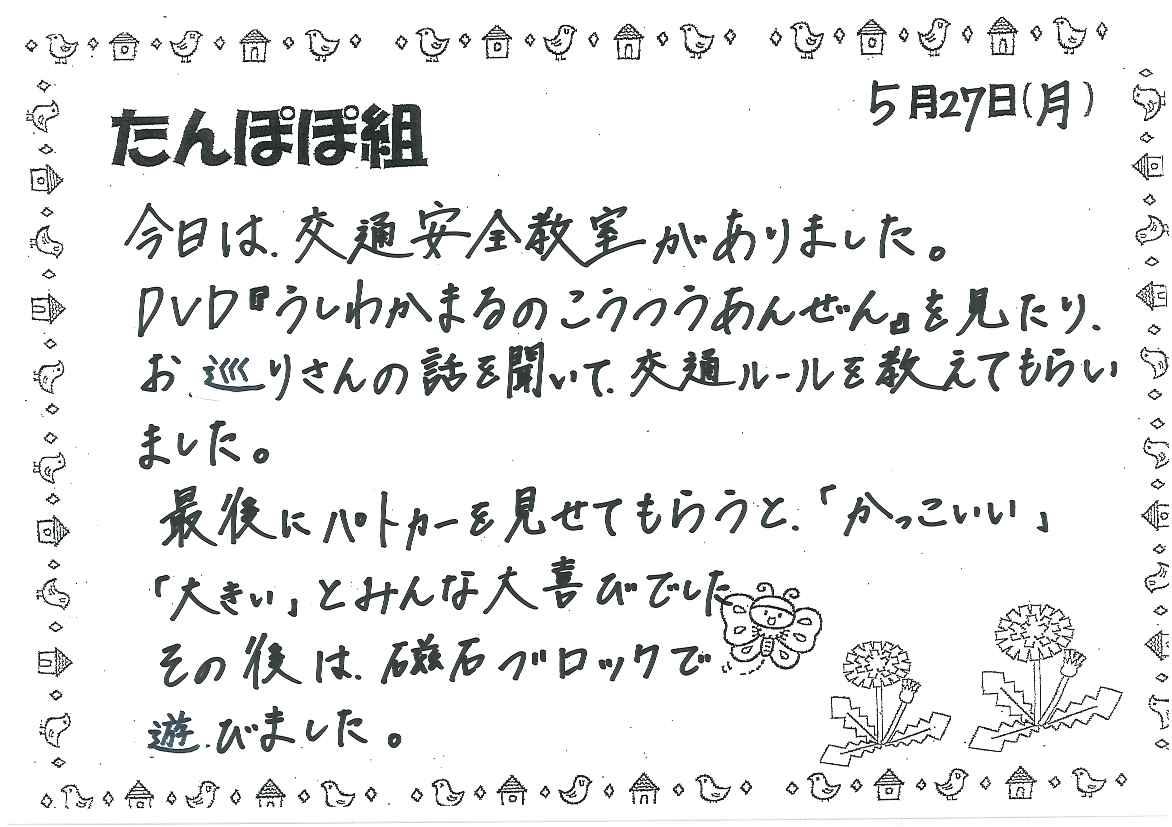 5月27日(月)
たんぽぽ組
今日は、交通安全教室がありました。
DVD『うしわかまるのこうつうあんぜん』を見たり、
お巡りさんの話を聞いて、交通ルールを教えてもらい
ました。
最後にパトカーを見せてもらうと、「かっこいい」
「大きい」とみんな大喜びでした
その後は、磁石ブロックで
遊びました。